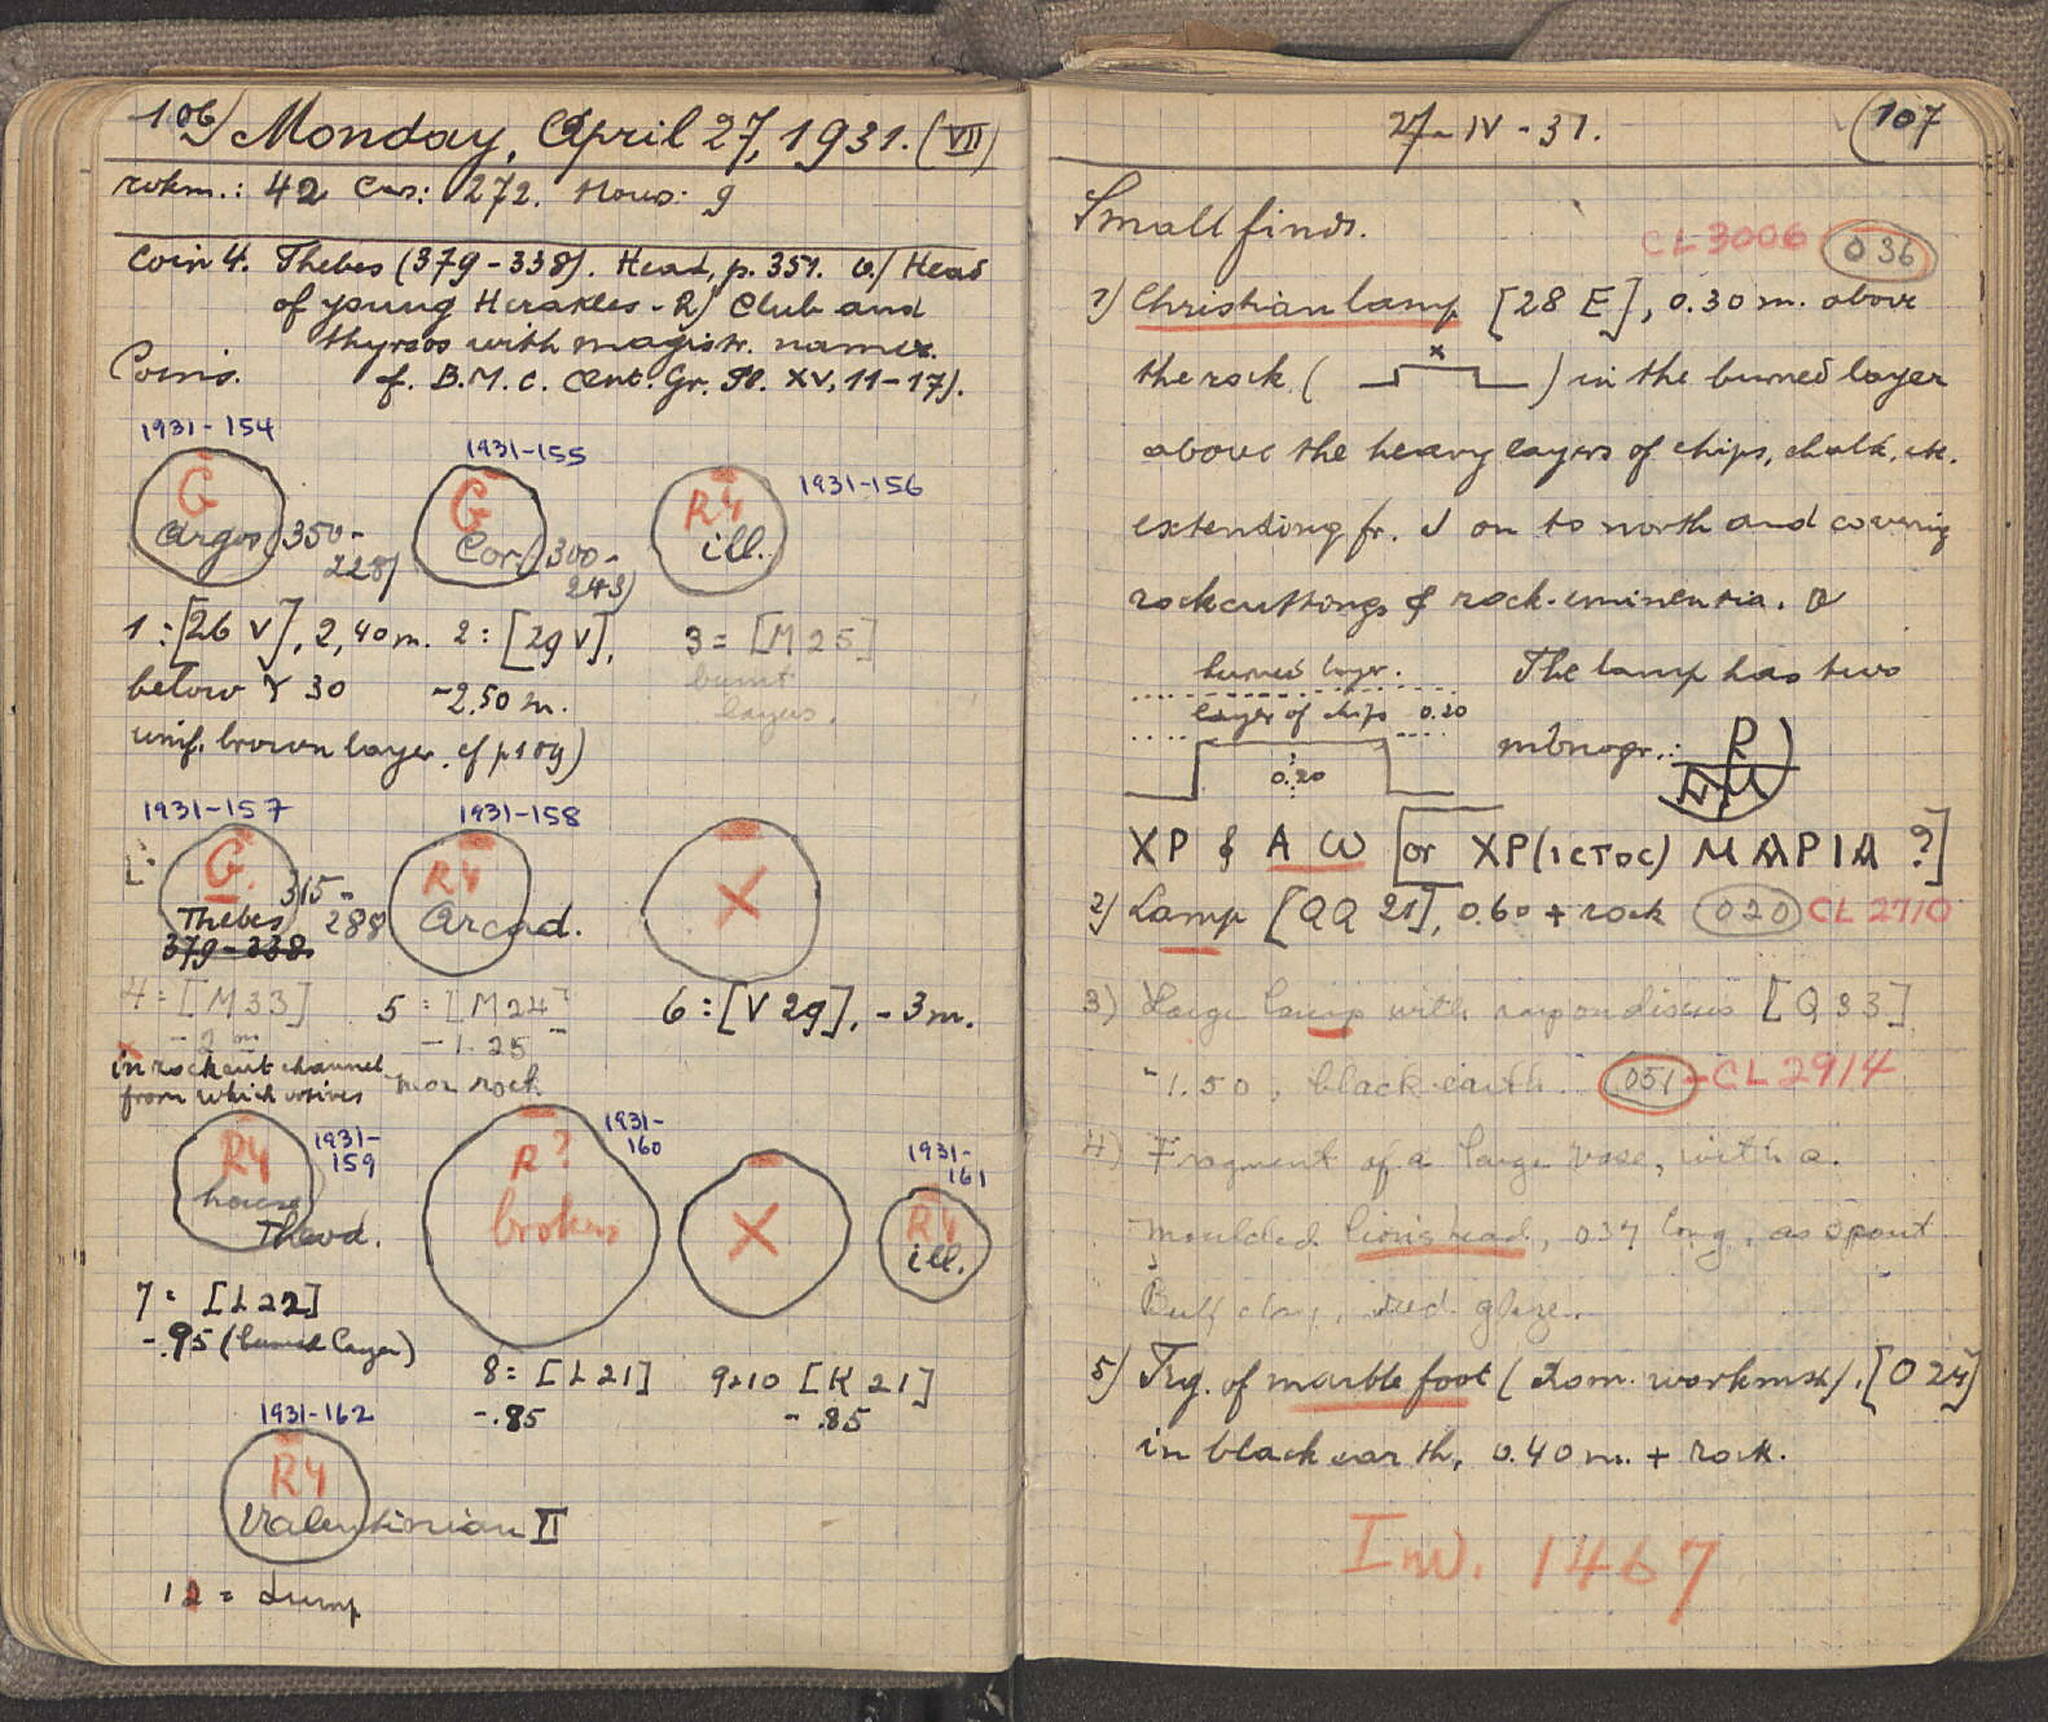 106) Monday, April 27, 1931. (VII)
wkm.: 42 Cars: 272. Hours: 9
Coin 4. Thebes (379-338). Head, p. 351. O/ Head
of young Herakles - R) Club and
thyrsos with magistr. names.
cf. B.M.C. Cent. Gr. Pl. XV, 11-17).
Coins.
1931-154
1931-155
1931-156
G
Argos 350-
228)
G
Cor. 300-
243)
R4
ill.
1: [26 V], 2,40 m.
below 30
unif. brown layer. cf p 109)
2: [29 V],
-2.50 m.
3 = [M 25]
burnt
layers.
1931-157
1931-158
G.
Thebes
379-338
315-
288
R4
Arcad.
X
4 = [M33]
- 2 m
x
in rockcut channel
from which votives
5 = [M24]
- 1.25
near rock
6: [V 29], - 3 m.
R4
house
Theod.
1931-
159
R?
broken
1931-
160
X
1931-
161
R4
ill.
7 = [L22]
-.95 (burned layer)
8 = [L21]
-.85
9+10 [K21]
- .85
1931-162
R4
Valentinian II
12 = dump
27-IV-31.
(107
Small finds.
CL 3006 036
1) Christian lamp [28 E], 0.30 m. above
the rock ( x ) in the burned layer
above the heavy layers of chips, chalk, etc.
extending fr. J on to north and covering
rockcuttings & rock-eminentia.
burned layer.
layer of chips 0.20
0.20
The lamp has two
monogr.:
XP & A ω [or XP(ιςτος) ΜΑΡΙΑ ?]
2) Lamp [QQ 21], 0.60 + rock 020 CL 2710
3) Large lamp with rays on discus [Q 33]
-1.50, black earth. 051 - CL 2914
4) Fragment of a large vase, with a
moulded lionshead, 0.34 long, as spout
Buff clay, red glaze.
5) Frg. of marble foot (Rom. workmsh). [O 24]
in black earth, 0.40 m. + rock.
Inv. 1467